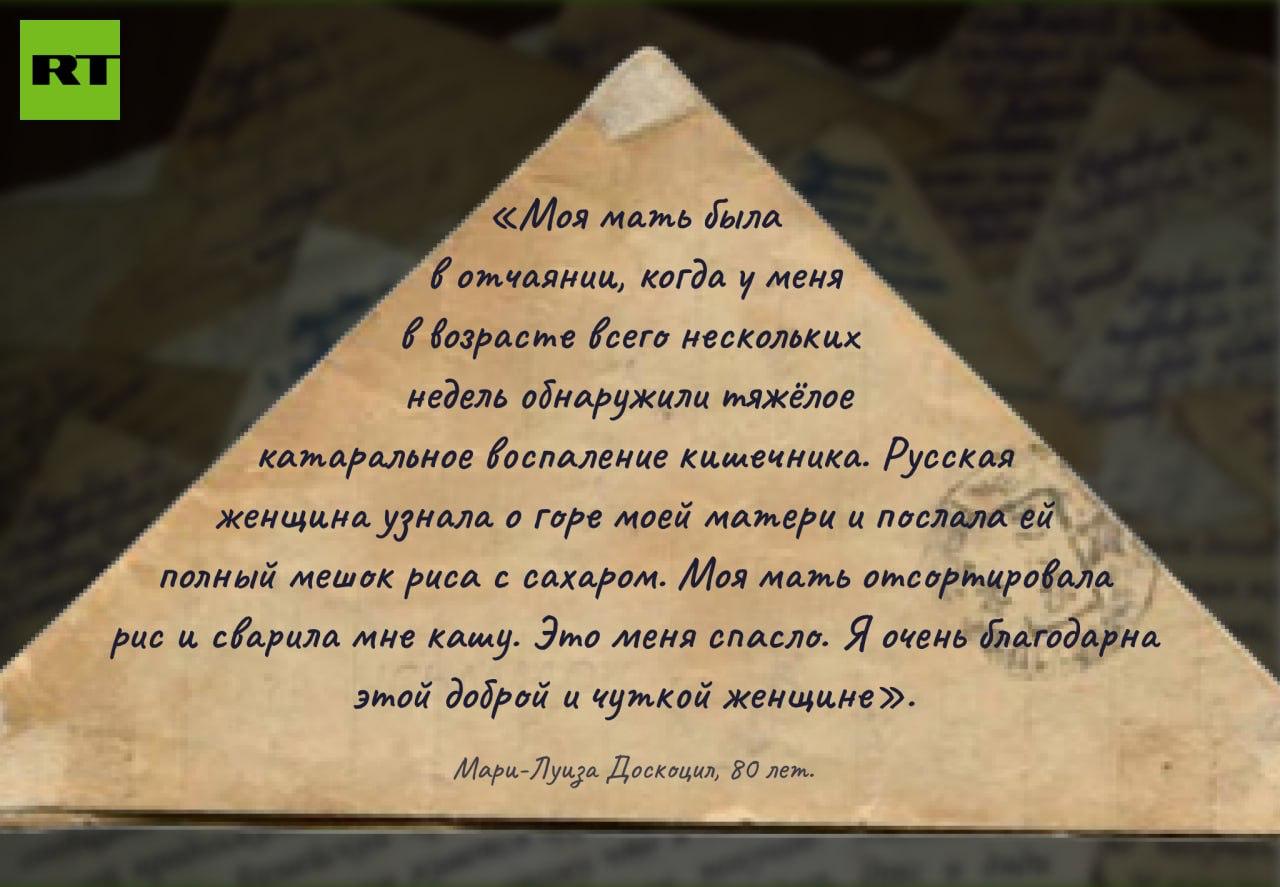 RT
«Моя мать была
в отчаянии, когда у меня
в возрасте всего нескольких
недель обнаружили тяжёлое
катаральное воспаление кишечника. Русская
женщина узнала о горе моей матери и послала ей
полный мешок риса с сахаром. Моя мать отсортировала
рис и сварила мне кашу. Это меня спасло. Я очень благодарна
этой доброй и чуткой женщине».
Мари-Луиза Доскоцил, 80 лет.